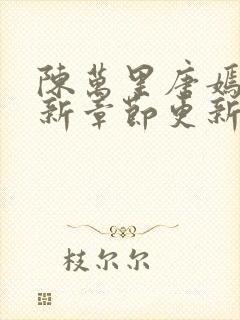 陳萬里唐嫣
新章節更新
枝尔尔